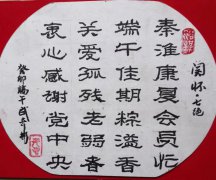 关怀·七绝
秦淮康复会员忙
端午佳期粽溢香
关爱孤残老弱者
衷心感谢党中央
癸卯端午